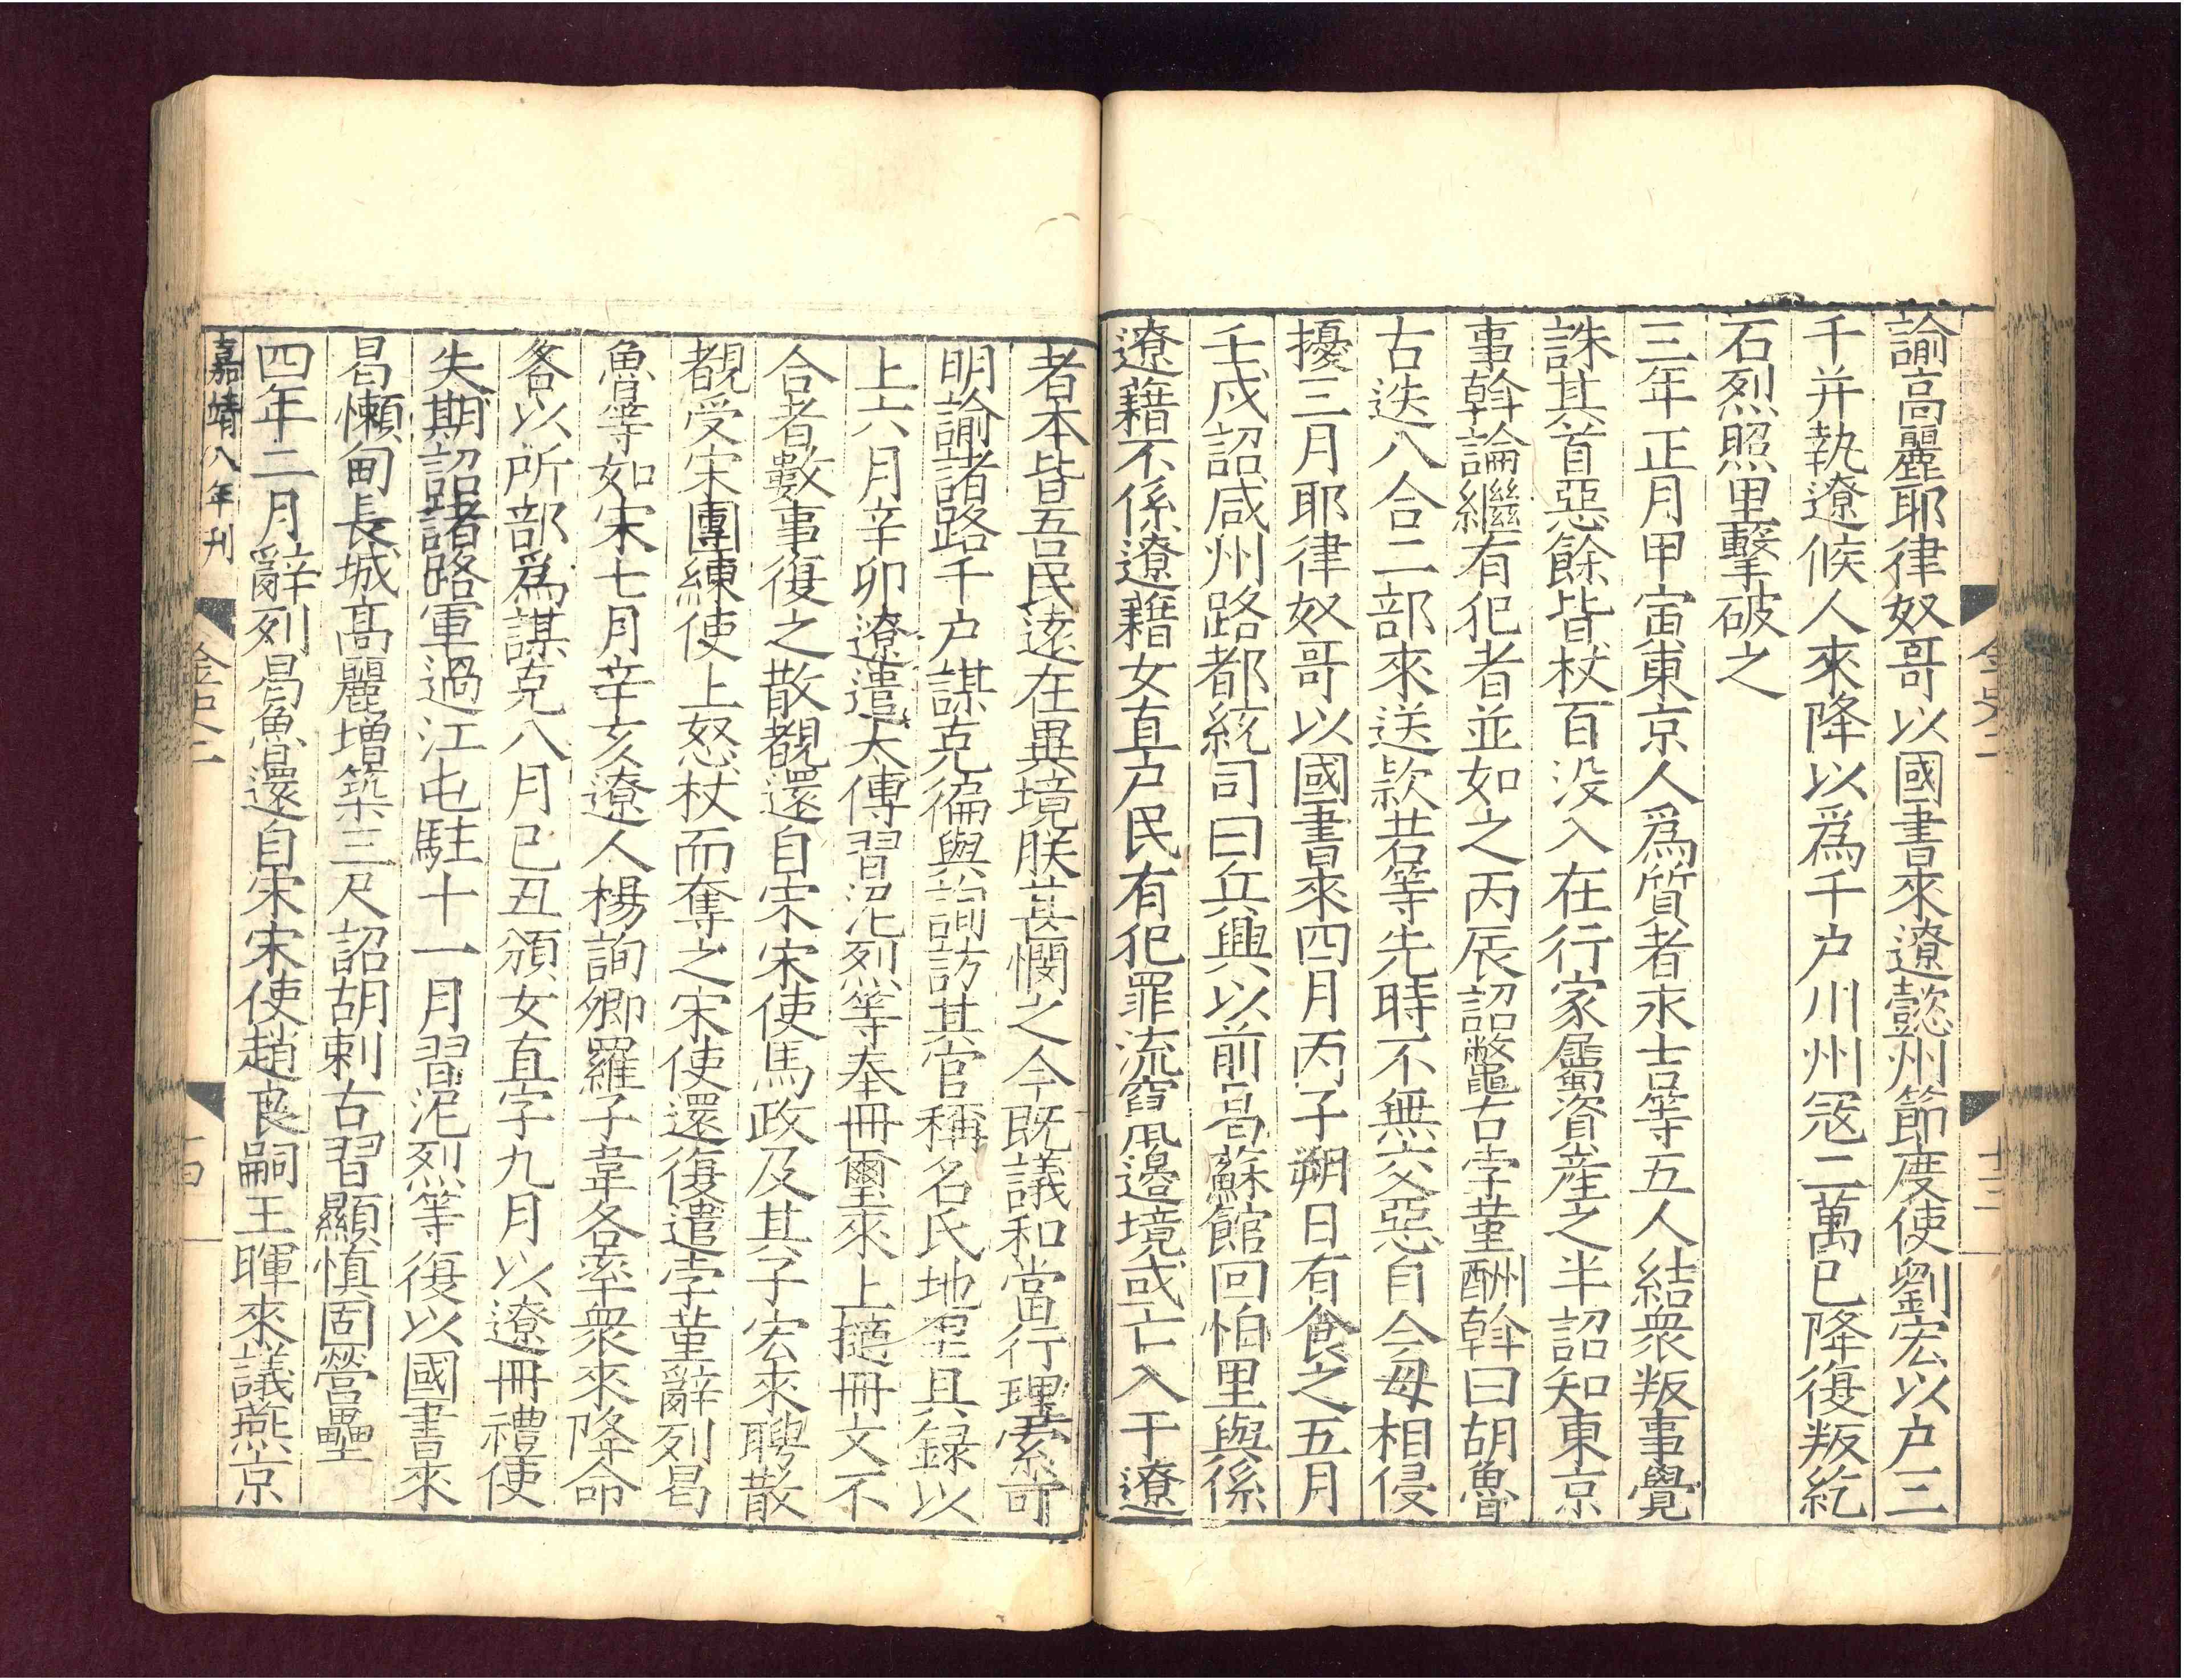 金史二
十三
諭高麗耶律奴哥以國書來遼懿州節度使劉宏以户三
千并執遼候人來降以爲千户川州寇二萬已降復叛紇
石烈照里擊破之
三年正月甲寅東京人爲質者永吉等五人結衆叛事覺
誅其首惡餘皆杖百没入在行家屬資産之半詔知東京
事斡論繼有犯者並如之丙辰詔鼈古孛菫酬斡曰胡魯
古迭八合二部來送款若等先時不無交惡自今毋相侵
擾三月耶律奴哥以國書來四月丙子朔日有食之五月
壬戌詔咸州路都統司曰兵興以前曷蘇館回怕里與係
遼籍不係遼籍女直户民有犯罪流竄邊境或亡入于遼
者本皆吾民遠在異境朕甚憫之今既議和當行理索可
明諭諸路千户謀克徧與詢訪其官稱名氏地里具録以
上六月辛卯遼遣太傅習泥烈等奉冊璽來上擿冊文不
合者數事復之散覩還自宋宋使馬政及其子宏來聘散
覩受宋團練使上怒杖而奪之宋使還復遣孛菫辭列曷
魯等如宋七月辛亥遼人楊詢卿羅子韋各率衆來降命
各以所部爲謀克八月己丑頒女直字九月以遼冊禮使
失期詔諸路軍過江屯駐十一月習泥烈等復以國書來
曷懶甸長城高麗增築三尺詔胡剌古習顯慎固營壘
四年二月辭列曷魯還自宋宋使趙良嗣王暉來議燕京
嘉靖八年刊
金史二
十四